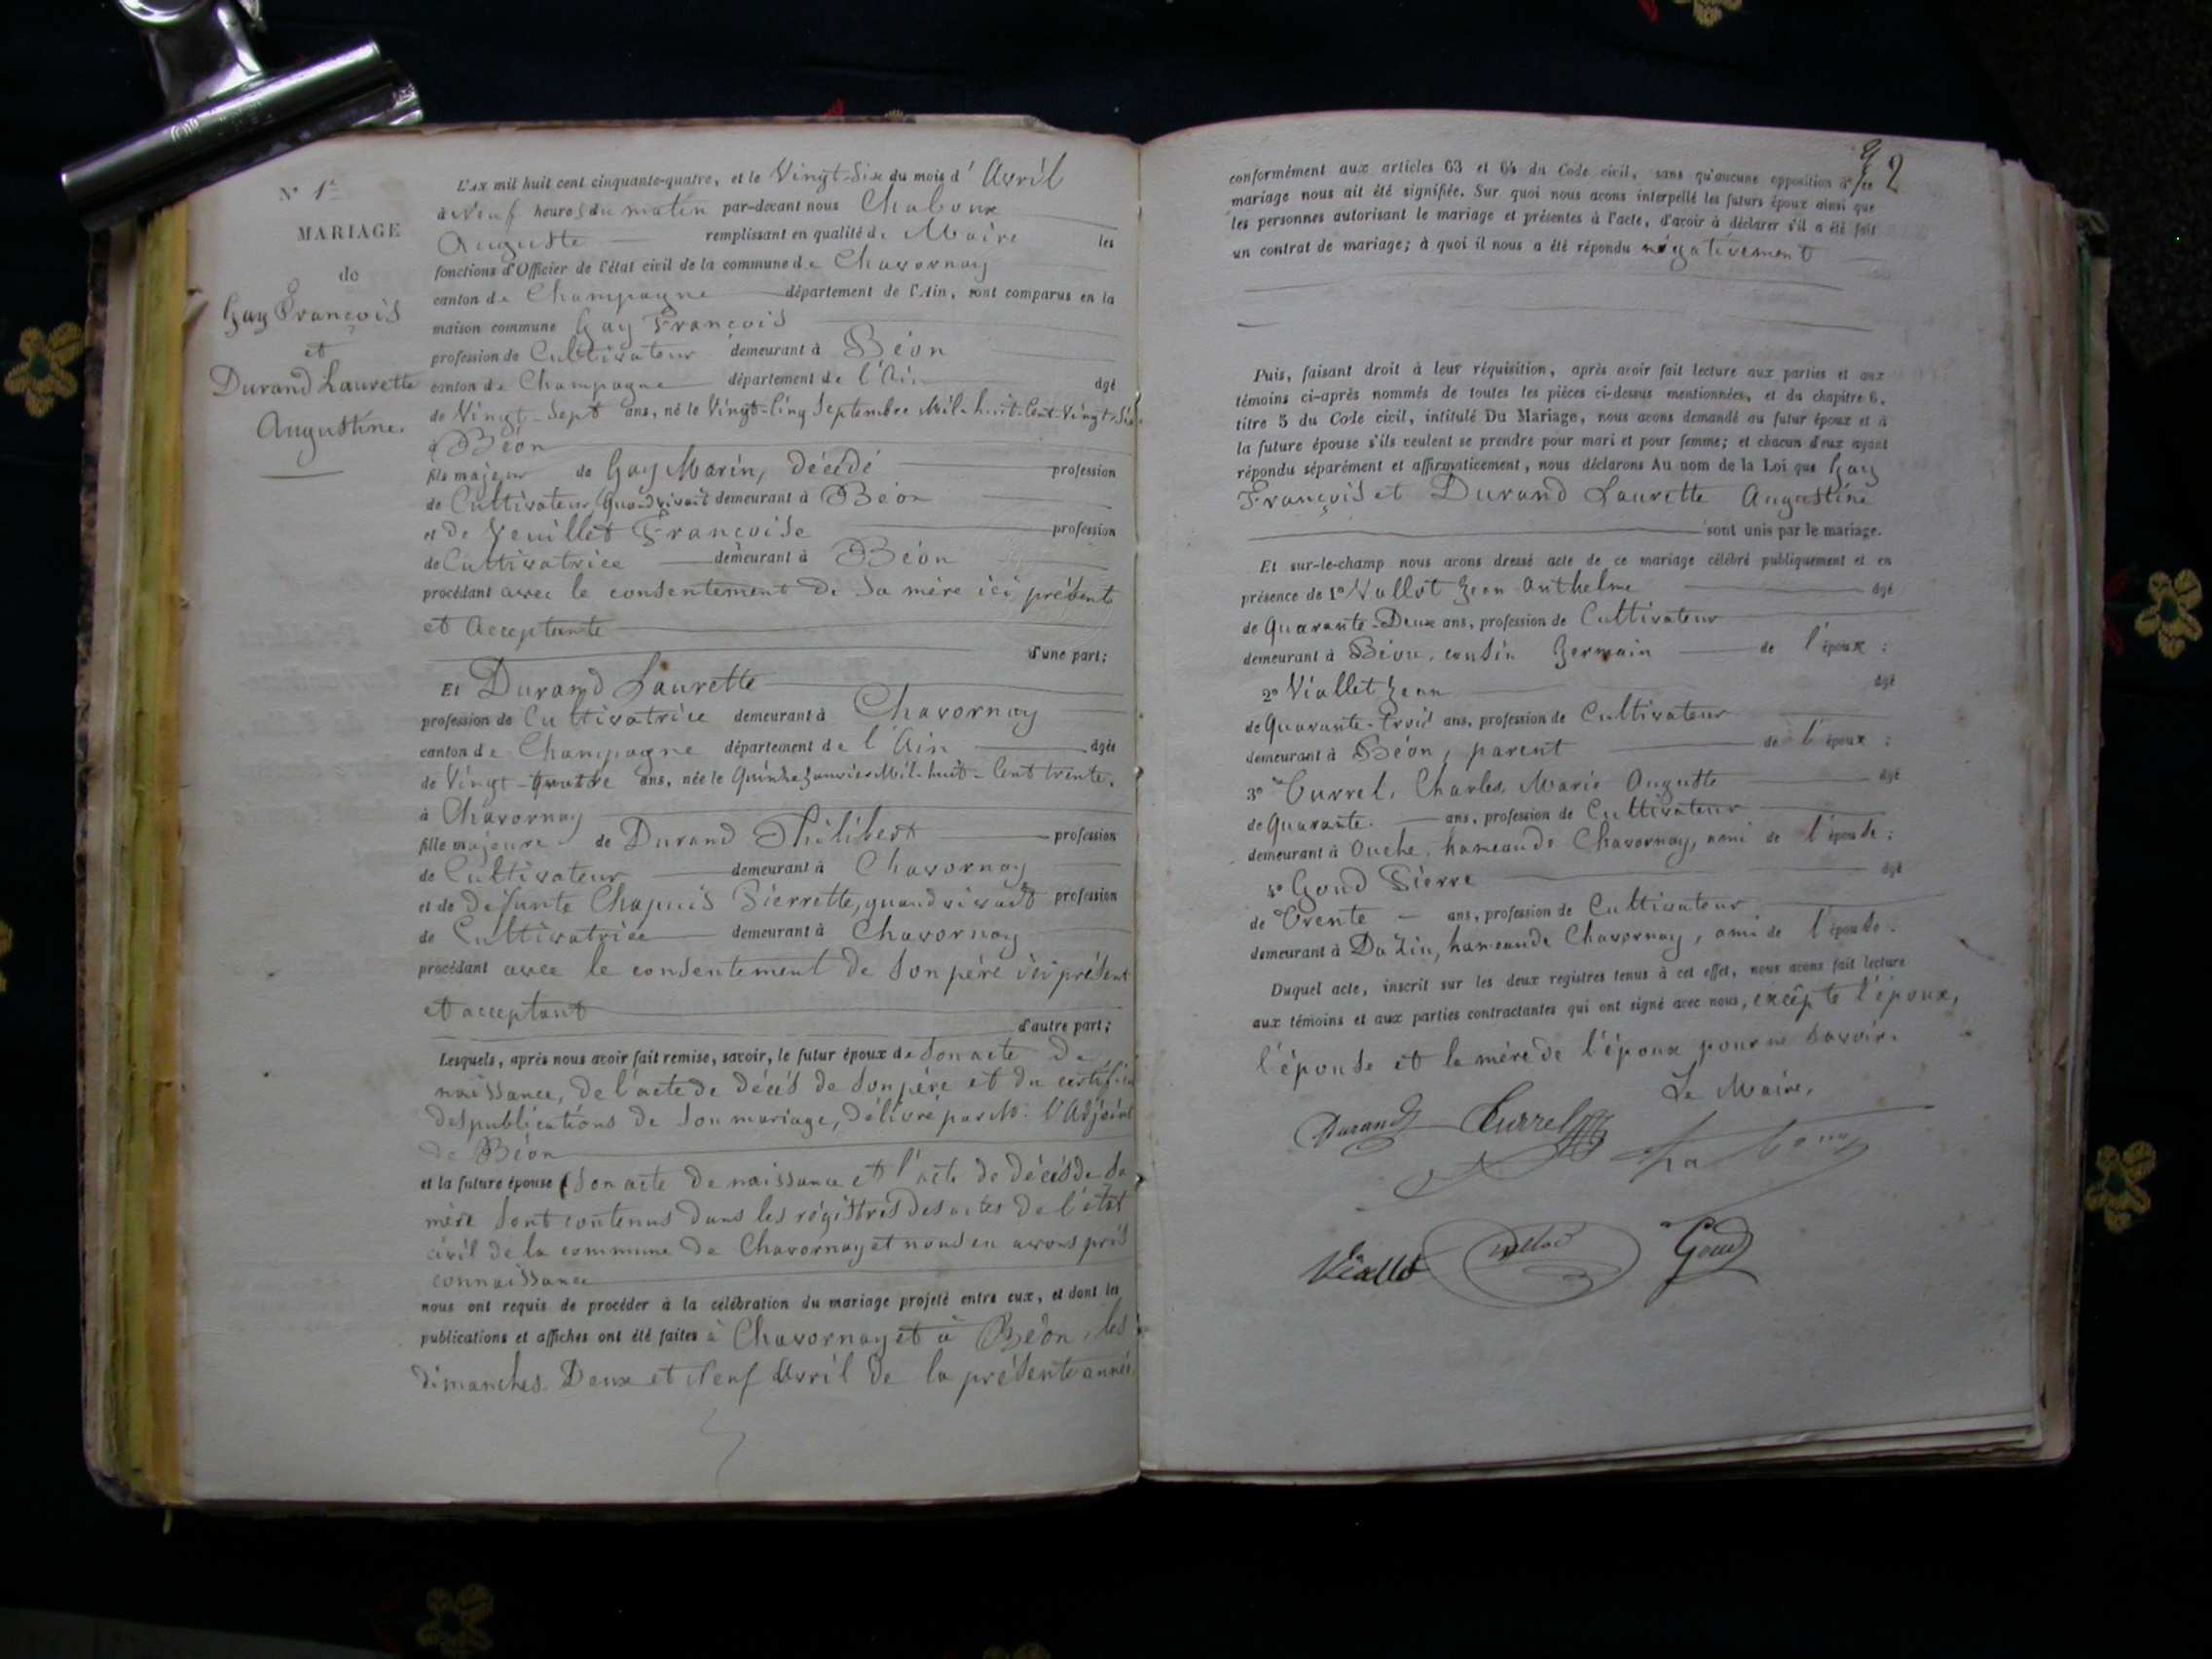 N° 1er
MARIAGE
de
Guy François
et
Durand Laurette
Augustine.
L'AN mil huit cent cinquante-quatre, et le Vingt-Six du mois d'Avril
à Neuf heures du matin par-devant nous Chaboux
Auguste remplissant en qualité de Maire les
fonctions d'Officier de l'état civil de la commune de Chavornay
canton de Champagne département de l'Ain, sont comparus en la
maison commune Guy François
profession de Cultivateur demeurant à Béon
canton de Champagne département de l'Ain âgé
de Vingt-Sept ans, né le Vingt-Cinq Septembre Mil-huit-Cent-Vingt-Six
à Béon
fils majeur de Guy Marin, décédé profession
de Cultivateur, quand vivait demeurant à Béon
et de Veuillet Françoise profession
de Cultivatrice demeurant à Béon
procédant avec le consentement de sa mère ici présente
et acceptante
d'une part;
Et Durand Laurette
profession de Cultivatrice demeurant à Chavornay
canton de Champagne département de l'Ain âgée
de Vingt-quatre ans, née le Quinze Janvier Mil-huit-Cent trente.
à Chavornay
fille majeure de Durand Philibert profession
de Cultivateur demeurant à Chavornay
et de défunte Chapuis Pierrette, quand vivait profession
de Cultivatrice demeurant à Chavornay
procédant avec le consentement de son père ici présent
et acceptant
d'autre part;
Lesquels, après nous avoir fait remise, savoir, le futur époux de son acte de
naissance, de l'acte de décès de son père et du certificat
des publications de son mariage, délivré par M. l'Adjoint
de Béon
et la future épouse (son acte de naissance et l'acte de décès de sa
mère sont contenus dans les régistres des actes de l'état
civil de la commune de Chavornay et nous en avons pris
connaissance
nous ont requis de procéder à la célébration du mariage projeté entre eux, et dont les
publications et affiches ont été faites à Chavornay et à Béon, les
dimanches Deux et Neuf Avril de la présente année
2
conformément aux articles 63 et 64 du Code civil, sans qu'aucune opposition à ce
mariage nous ait été signifiée. Sur quoi nous avons interpellé les futurs époux ainsi que
les personnes autorisant le mariage et présentes à l'acte, d'avoir à déclarer s'il a été fait
un contrat de mariage; à quoi il nous a été répondu négativement
Puis, faisant droit à leur réquisition, après avoir fait lecture aux parties et aux
témoins ci-après nommés de toutes les pièces ci-dessus mentionnées, et du chapitre 6,
titre 5 du Code civil, intitulé Du Mariage, nous avons demandé au futur époux et à
la future épouse s'ils veulent se prendre pour mari et pour femme; et chacun d'eux ayant
répondu séparément et affirmativement, nous déclarons Au nom de la Loi que Guy
François et Durand Laurette Augustine
sont unis par le mariage.
Et sur-le-champ nous avons dressé acte de ce mariage célébré publiquement et en
présence de 1° Vallot Jean Anthelme âgé
de Quarante-Deux ans, profession de Cultivateur
demeurant à Béon, cousin Germain de l'époux;
2° Viallet Jean âgé
de Quarante-trois ans, profession de Cultivateur
demeurant à Béon, parent de l'époux;
3° Currel, Charles Marie Auguste âgé
de Quarante. ans, profession de Cultivateur
demeurant à Ouche, hameau de Chavornay, ami de l'épouse;
4° Goud Pierre âgé
de Trente ans, profession de Cultivateur
demeurant à Dazin, hameau de Chavornay, ami de l'épouse.
Duquel acte, inscrit sur les deux registres tenus à cet effet, nous avons fait lecture
aux témoins et aux parties contractantes qui ont signé avec nous, excepté l'époux,
l'épouse et la mère de l'époux pour ne savoir.
Le Maire,
Durand Currel Chaboux
Viallet Vallot Goud